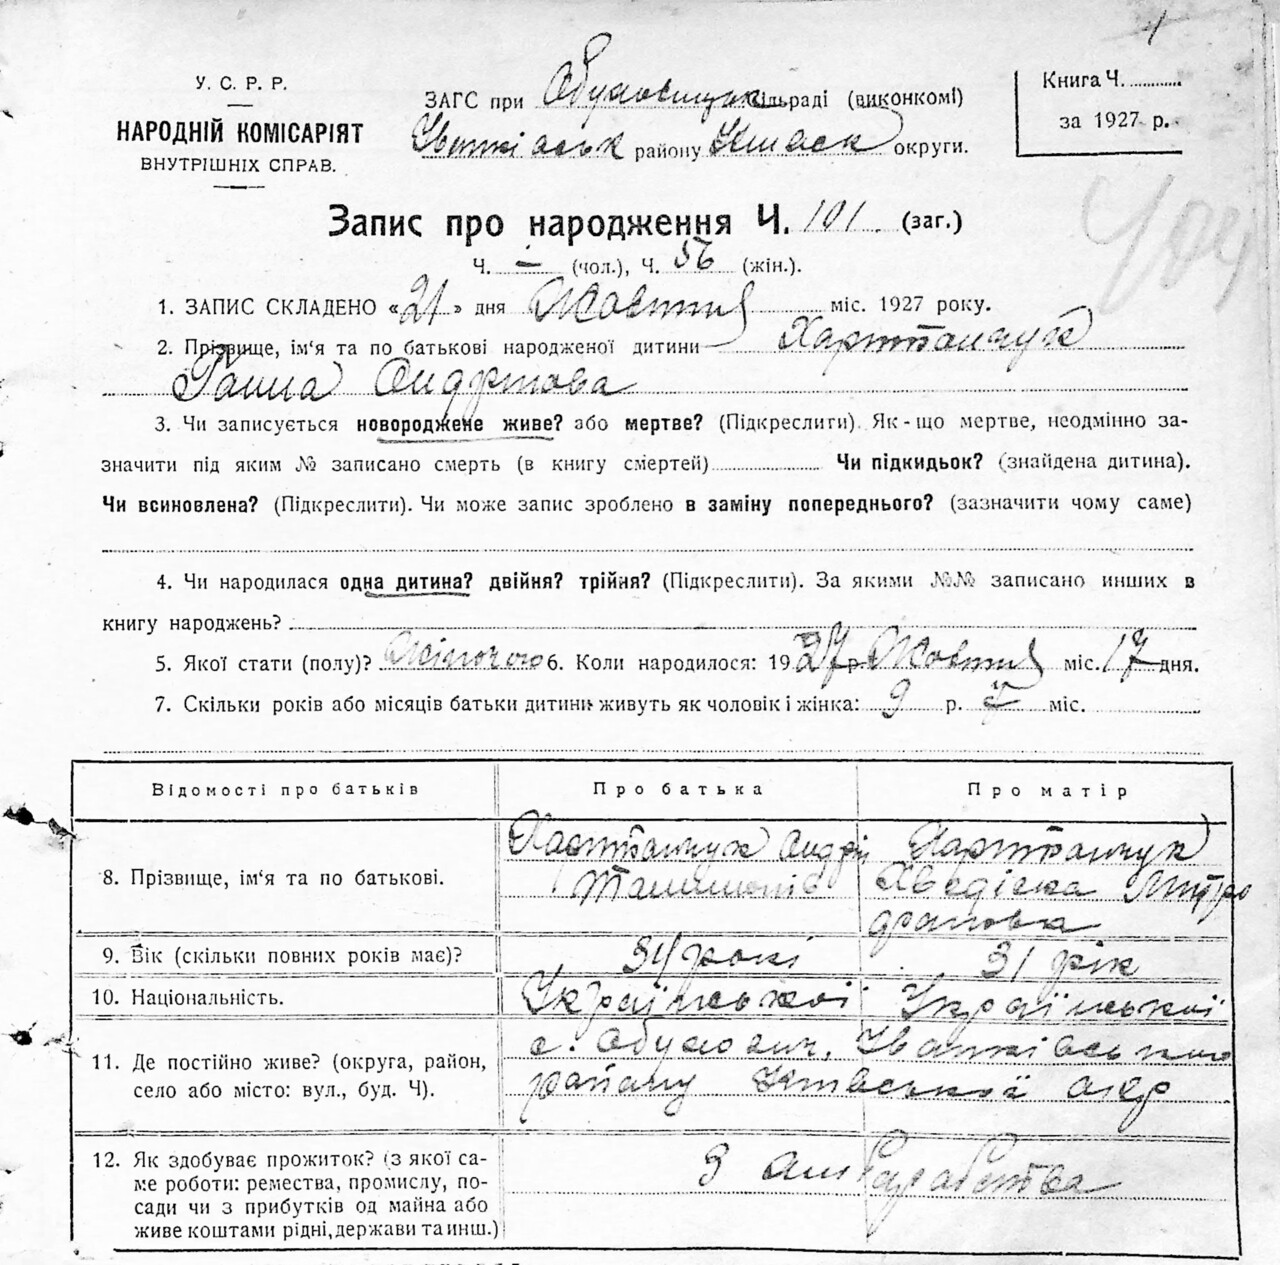 У. С. Р. Р.
НАРОДНІЙ КОМІСАРІЯТ
ВНУТРІШНІХ СПРАВ.
ЗАГС при Обуховицьк сільраді (виконкомі)
Іванківськ району Київськ округи.
Книга Ч.
за 1927 р.
Запис про народження Ч. 101. (заг.)
Ч. – (чол.), Ч. 56 (жін.).
1. ЗАПИС СКЛАДЕНО «21» дня Жовтня міс. 1927 року.
2. Прізвище, ім'я та по батькові народженої дитини Харитончук
Ганна Андрієва
3. Чи записується новороджене живе? або мертве? (Підкреслити). Як-що мертве, неодмінно за-
значити під яким № записано смерть (в книгу смертей) Чи підкидьок? (знайдена дитина).
Чи всиновлена? (Підкреслити). Чи може запис зроблено в заміну попереднього? (зазначити чому саме)
4. Чи народилася одна дитина? двійня? трійня? (Підкреслити). За якими №№ записано инших в
книгу народжень?
5. Якої стати (полу)? Жіночою 6. Коли народилося: 1927 р. Жовтня міс. 17 дня.
7. Скільки років або місяців батьки дитини живуть як чоловік і жінка: 9 р. міс.
Відомості про батьків Про батька Про матір
8. Прізвище, ім'я та по батькові.
Харитончук Андрій
Харитончук
Хведіска Митро
фановна
9. Вік (скільки повних років має)? 34 роки 31 рік
10. Національність. Української Української
11. Де постійно живе? (округа, район,
село або місто: вул., буд. Ч).
с. Обуховичі, Іванківського
району Київської окр
12. Як здобуває прожиток? (з якої са-
ме роботи: ремества, промислу, по-
сади чи з прибутків од майна або
живе коштами рідні, держави та инш.)
З